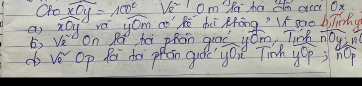 Cho xOy = 100° Vẽ Om là tia đối của Ox
a) xOy và yOm có kề bù không? Vì sao
b) Vẽ On là tia phân giác yOm. Tính nOy; nO
c) Vẽ Op là tia phân giác yOx Tính yOp; nOp